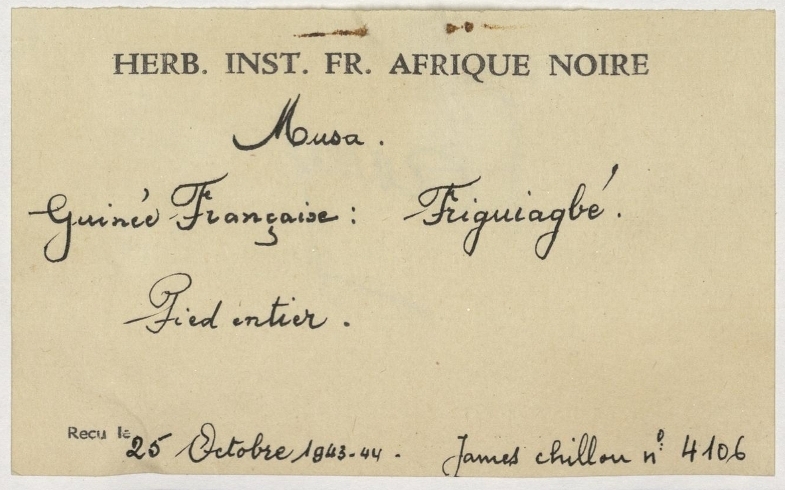 HERB. INST. FR. AFRIQUE NOIRE
Musa.
Guinée Française: Friguiagbé.
Pied entier.
Recu le 25 Octobre 1943-44. James chillou n° 4106